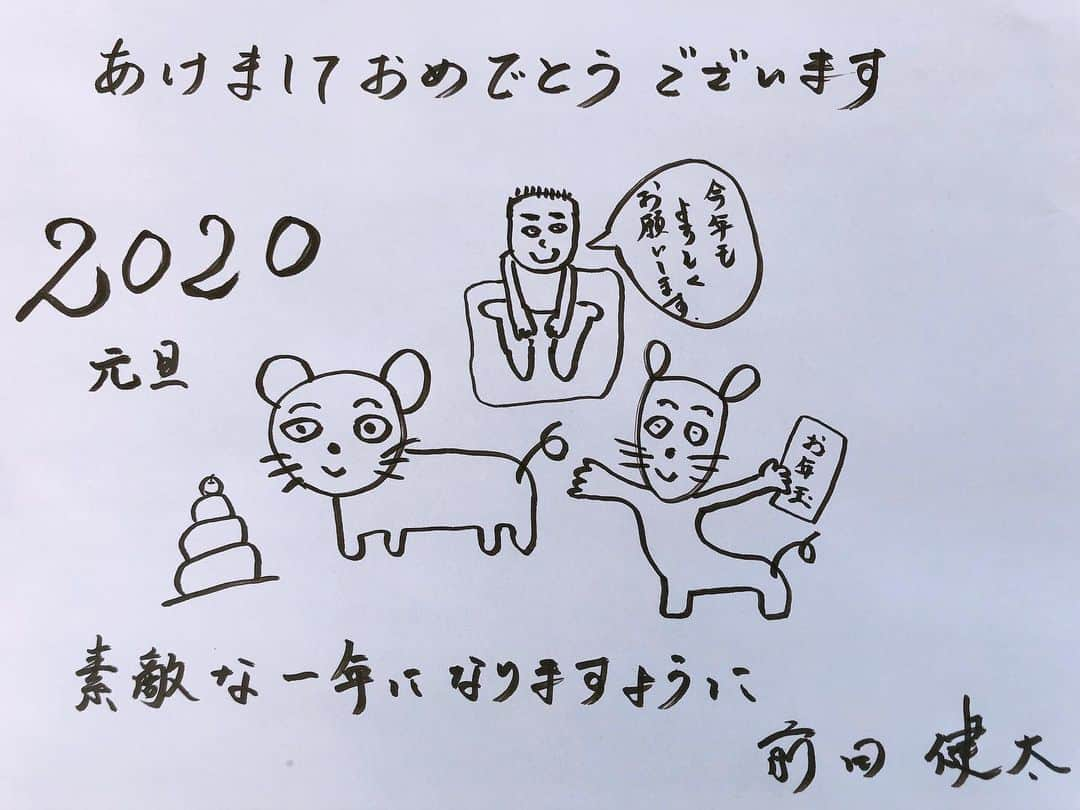 あけましておめでとうございます
2020
元旦
今年も
よろしく
お願いします。
お年玉
素敵な一年になりますように
前田健太